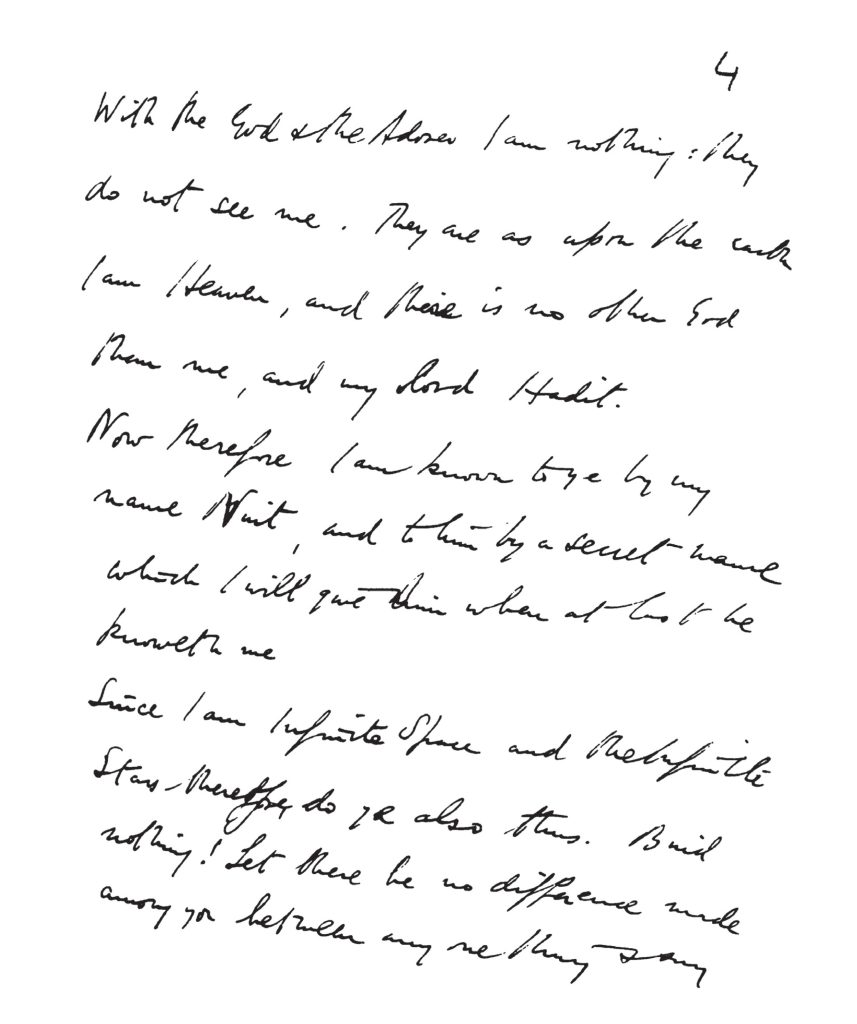 4
With the God & the Adorer I am nothing: they
do not see me. They are as upon the earth
I am Heaven, and there is no other God
than me, and my lord Hadit.
Now therefore I am known to ye by my
name Nuit, and to him by a secret name
which I will give him when at last he
knoweth me
Since I am Infinite Space and the Infinite
Stars thereof, do ye also thus. Bind
nothing! Let there be no difference made
among you between any one thing & any